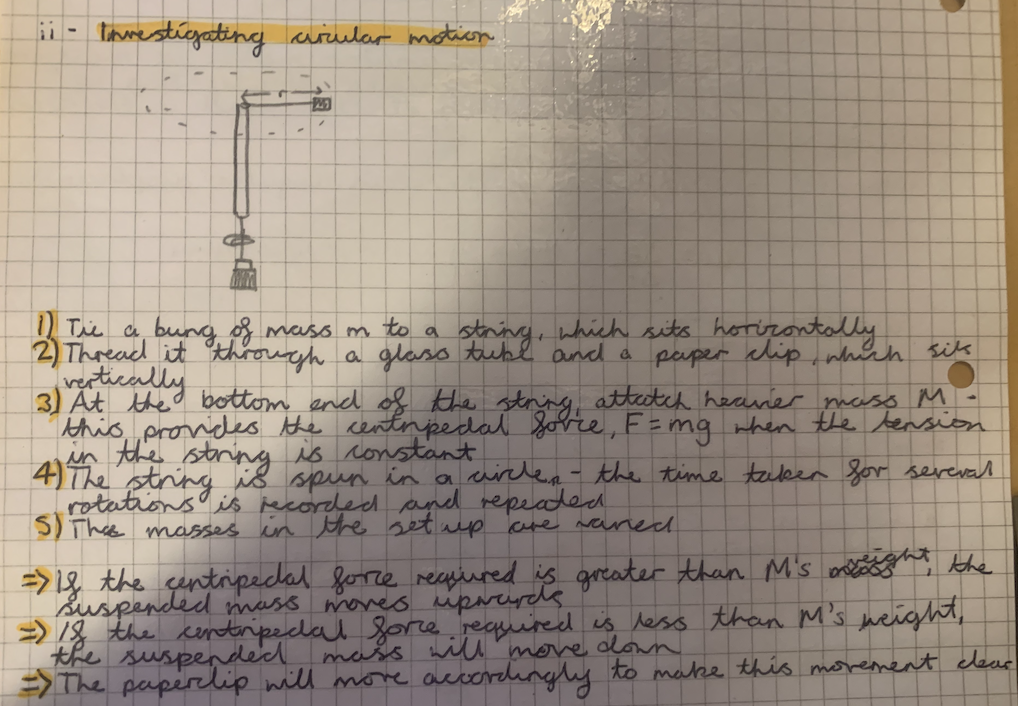 ii - Investigating circular motion
r
m
1) Tie a bung of mass m to a string, which sits horizontally
2) Thread it through a glass tube and a paper clip, which sits
vertically
3) At the bottom end of the string, attatch heavier mass M -
this provides the centripedal force, F = mg when the tension
in the string is constant
4) The string is spun in a circle, - the time taken for several
rotations is recorded and repeated
5) The masses in the set up are varied
=> If the centripedal force required is greater than M's weight, the
suspended mass moves upwards
=> If the centripedal force required is less than M's weight,
the suspended mass will move down
=> The paperclip will move accordingly to make this movement clear